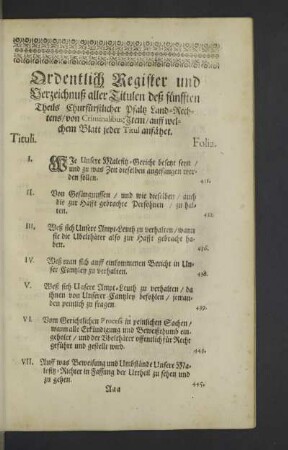 Ordentlich Register und
Verzeichnuß aller Titulen deß fünfften
Theils Churfürstlicher Pfaltz Land-Rech-
tens/ von Criminalibus Item/ auff wel-
chem Blatt jeder Titul anfähet.
Tituli. Folia.
I. WJe Unsere Malefitz-Gericht besetzt seyn/
und zu was Zeit dieselben angefangen wer-
den sollen.
II. Von Gefängnussen/ und wie dieselben/ auch
die zur Hafft gebrachte Persohnen/ zu hal-
ten.
III. Weß sich Unsere Ampt-Leuth zu verhalten/ wann
sie die Ubelthäter also zur Hafft gebracht ha-
ben.
IV. Weß man sich auff einkommenen Bericht in Un-
ser Cantzley zu verhalten. 438.
V. Weß sich Unsere Ampt-Leuth zu verhalten/ da
ihnen von Unserer Cantzley befohlen/ jeman-
den peinlich zu fragen 439.
VI. Vom Gerichtlichen Process in peinlichen Sachen/
wann alle Erkündigung und Beweißthumb ein-
geholet/ und der Ubelthäter öffentlich für Recht
geführt und gestellt wird.
VII. Auff was Beweisung und Umbstände Unsere Ma-
lefitz-Richter in Fassung der Urtheil zu sehen und
zu gehen. 445.
Aaa